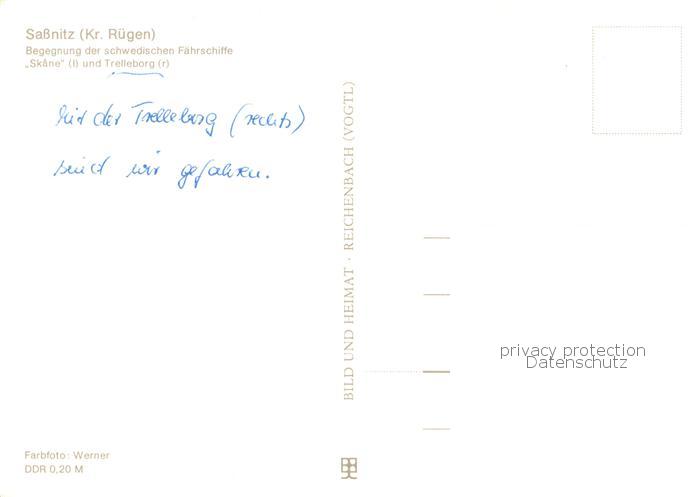 Saßnitz (Kr. Rügen)
Begegnung der schwedischen Fährschiffe
„Skåne" (l) und Trelleborg (r)
Mit der Trelleborg (rechts)
sind wir gefahren.
BILD UND HEIMAT · REICHENBACH (VOGTL)
privacy protection
Datenschutz
Farbfoto: Werner
DDR 0,20 M